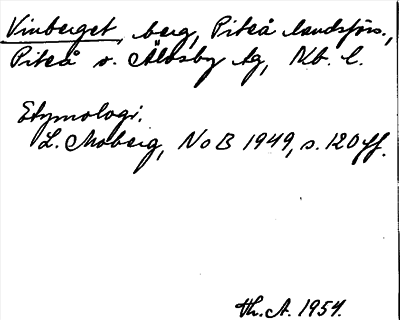 Vinberget, berg, Piteå landsförs.,
Piteå o. Älvsby tg, Nb. l.
Etymologi:
L. Moberg, NoB 1949, s. 120 ff.
Th. A. 1954.